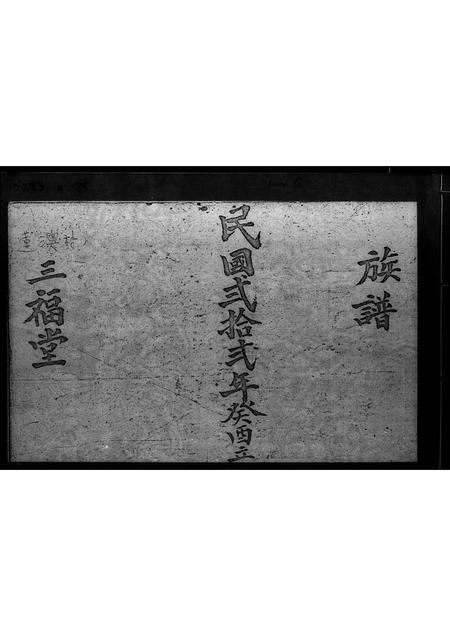 族譜
民國弍拾弍年癸酉立
三福堂